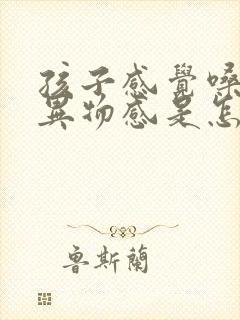 孩子感覺嗓
異物感是怎
魯斯蘭